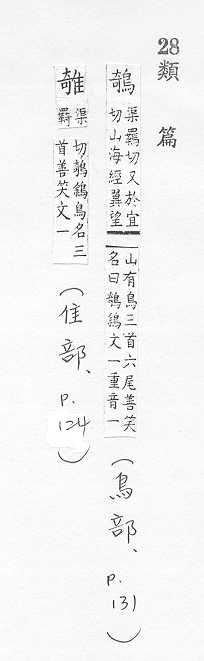 28 類 篇
鵸 渠羈切又於宜
切山海經翼望
山有鳥三首六尾善笑
名曰鵸鵌文一重音一
(鳥部、p.131)
渠羈
切鵸鵌鳥名三
首善笑文一
(隹部、p.124)